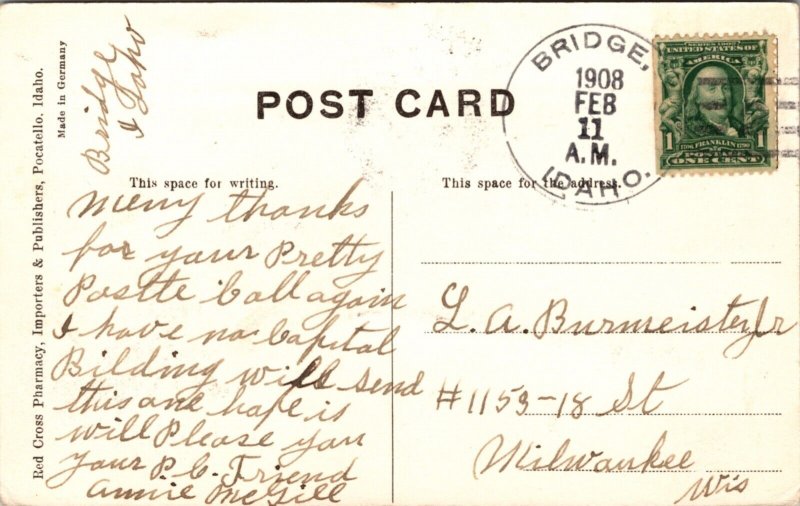 POST CARD
Made in Germany
Red Cross Pharmacy, Importers & Publishers, Pocatello, Idaho.
Bridge
Idaho
BRIDGE,
1908
FEB
11
A.M.
IDAHO.
SERIES 1902
UNITED STATES OF
AMERICA
1 1
1706 FRANKLIN 1790
POSTAGE
ONE CENT
This space for writing.
This space for the address.
Meny thanks
for your Pretty
Postle Call again
I have no Capital
Bilding will send
this one hope is
will Please you
your P.C. Friend
Annie McGill
L. A. Burmeister Jr
#1153-18 St
Milwaukee
Wis